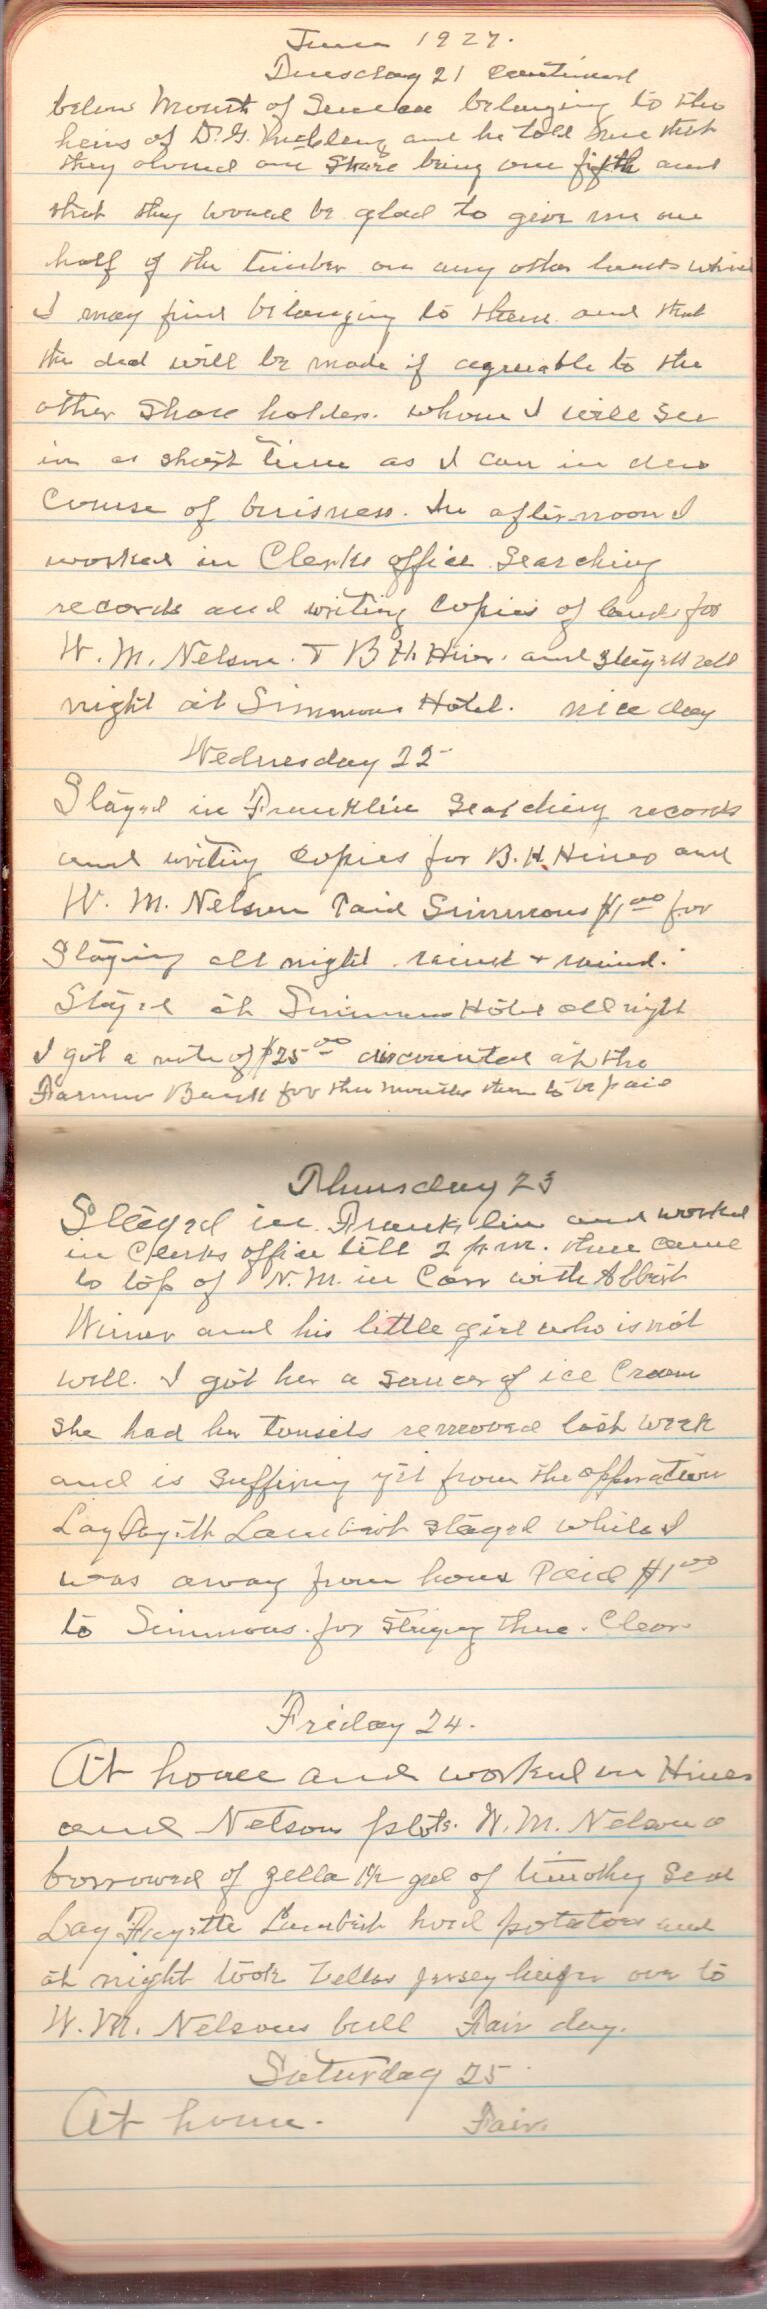 June 1927.
Tuesday 21 continued
below Mouth of Seneca belonging to the
heirs of D. G. and he told me that
they owned one share being one fifth and
that they would be glad to give me one
half of the timber on any other lands which
I may find belonging to them and that
the ded will be made if agreeable to the
other Share holders. whom I will See
in as short time as I can in due
Course of buisness. In afternoon I
worked in Clerks office Searching
records and writing Copies of lands for
W. M. Nelson. & B H. Hiner. and Stayed all
night at Simmons Hotel. nice day
Wednesday 22
Stayed in Franklin Searching records
and writing Copies for B. H. Hiner and
W. M. Nelson Paid Simmons $1 00 for
Staying all night. +
Stayed at Simmons Hotel all night
I got a note of $25 00 discounted at the
Farmers Bank for three months then to be paid
Thursday 23
Stayed in Franklin and worked
in Clerks office till 2 p.m. then came
to top of N. M. in Carr with
and his little girl who is not
well. I got her a saucer of ice Cream
She had her tonsils removed last week
and is Suffering yet from the opperation
Lay Fayette Lambert Stayed while I
was away from home Paid $1 00
to Simmons for Staying there. Clear.
Friday 24.
At home and worked on Hiner
and Nelson plots. W. M. Nelson
borrowed of Zella 1½ gal of timothy Seed
Lay Fayette Lambert hoed potatoes and
at night took Zellas Jersey heifer over to
W. M. Nelsons bull Fair day.
Saturday 25
At home. Fair.